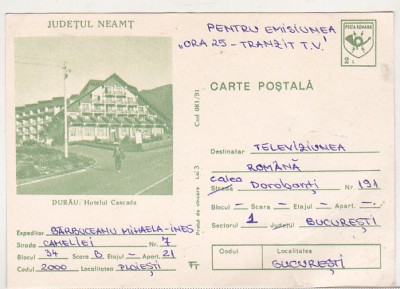 JUDEŢUL NEAMŢ
DURĂU: Hotelul Cascada
Expeditor BĂRBUCEANU MIHAELA-INES
Strada CAMELIEI Nr. 7
Blocul 34 Scara B Etajul - Apart. 21
Codul 2000 Localitatea PLOIEŞTI
Cod 081/91
Preţul de vînzare Lei 3
PENTRU EMISIUNEA
„ORA 25 - TRANZIT T.V."
POSTA ROMANA
2 L
CARTE POŞTALĂ
Destinatar TELEVIZIUNEA
ROMÂNĂ
Calea
Strada Dorobanţi Nr 191
Blocul - Scara - Etajul - Apart. -
Sectorul 1 Judeţul BUCUREŞTI
Codul Localitatea
BUCUREŞTI